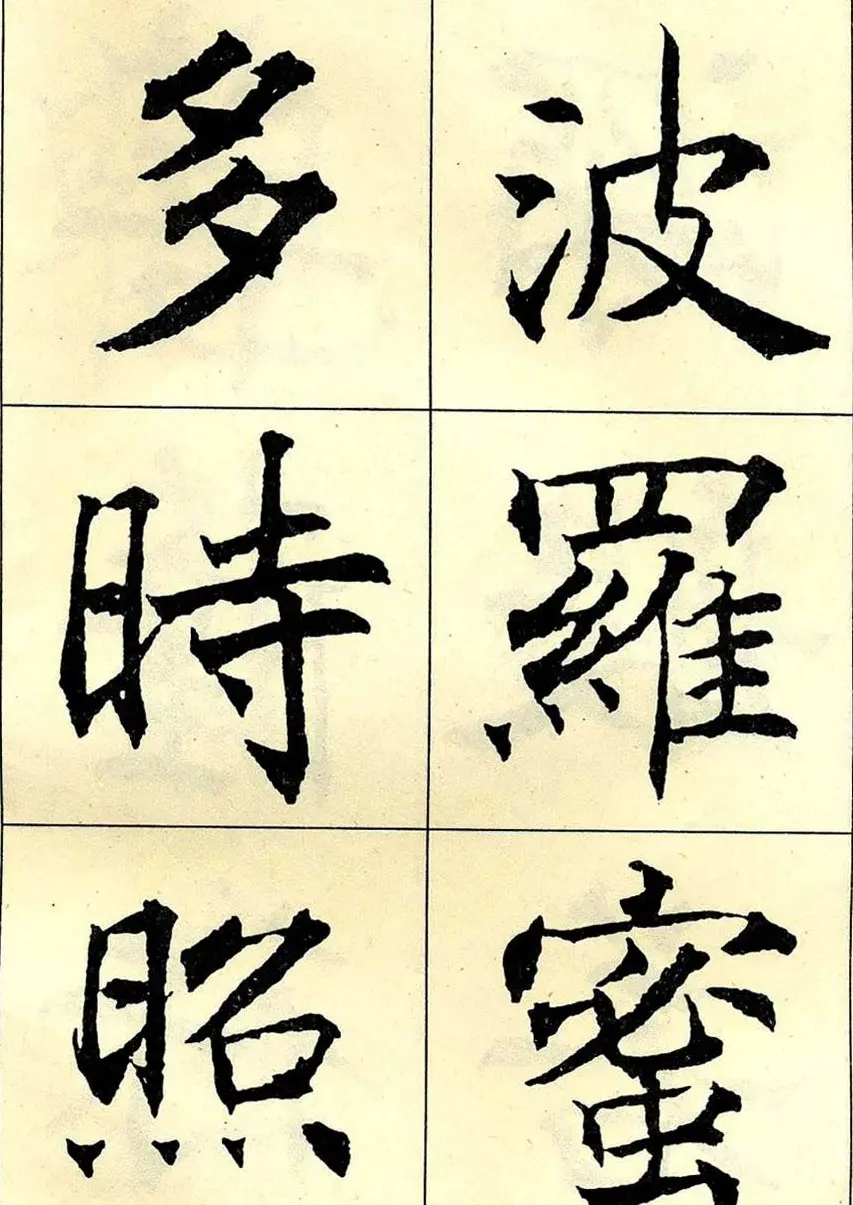 波羅蜜
多時照